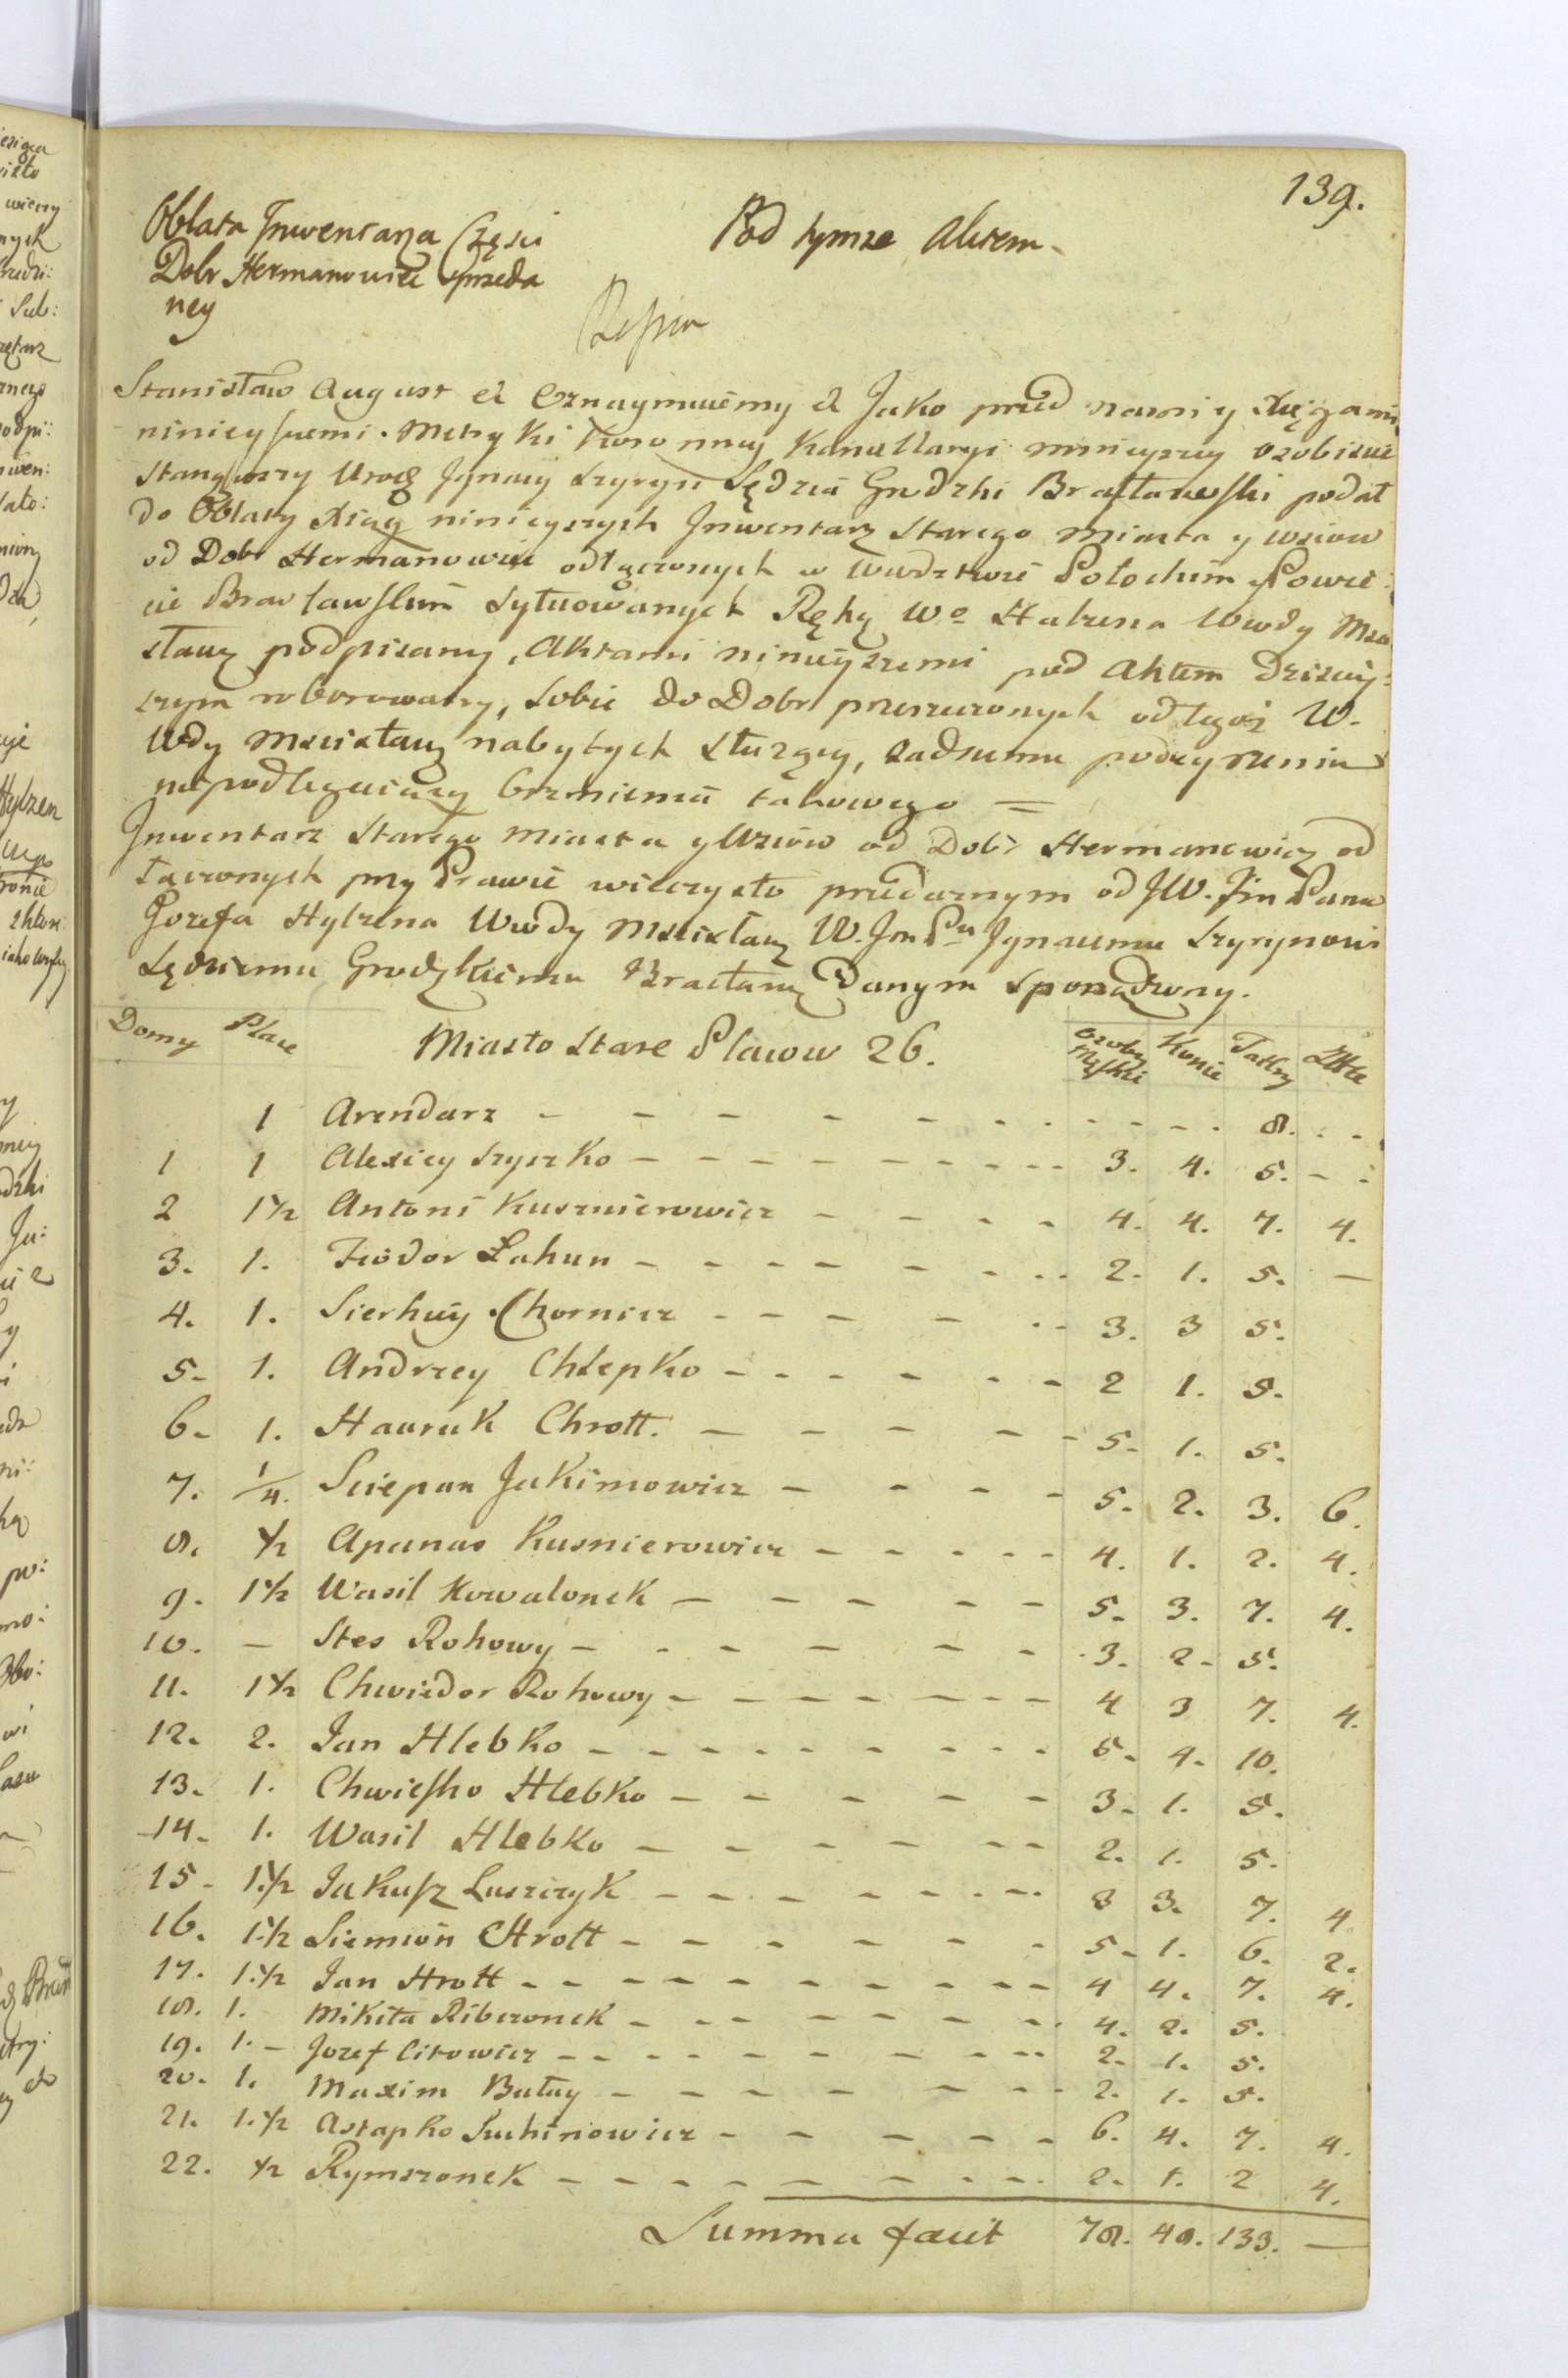 139.
Oblata Inwentarza Części
Dobr Hermanowicz przeda
ney
Pod tymze Aktem
Stanisław August et Oznaymuiemy et Jako przed nami y Xięgami
ninieyszemi Metryki Koronney Kancellaryi mnieyszey osobiscie
stanąwszy Urodz Jgnacy Szyryn Sędzia Grodzki Bracławski podał
do Oblaty Xiąg ninieyszych Jnwentarz Starego Miasta y wsiow
od Dobr Hermanowicz odłączonych w Wwdztwie Połockim Powie:
cie Brasławskim sytuowanych Ręką Wo Hilzena Wwdy Msci
sław podpisany, Aktami ninieyszemi pod Aktem dzisiey:
szym roborowany, sobie do Dobr przerzeczonych od tegoż W.
Wdy Mscisław nabytych służący, żadnemu podeyrzeniu
niepodlegaiący brzmienia takowego =
Jnwentarz Starego Miasta y Wsiow od Dobr Hermanowicz od
łączonych przy Prawie wieczysto przedażnym od JW. Jm Pana
Jozefa Hylzena Wwdy Mscisław W. Jm Pu Jgnacemu Szyrynowi
Sędziemu Grodzkiemu Bracław danym sporządzony.
Domy Place Miasto Stare Placow 26. Osoby Męskie Konie Tallry Złłte
1 Arendarz - - - 8. - -
1 1 Alexiey Szyszko - - - 3. 4. 5. - -
2 1½ Antoni Kusznierowicz - - - 4. 4. 7. 4.
3. 1. Fiodor Łahun - - - 2. 1. 5. —
4. 1. Sierhiey Chornicz - - - 3. 3 5.
5. 1. Andrzey Chlepko - - - 2 1. 5.
6. 1. Hauruk Chrott. - - - 5. 1. 5.
7. 1/4. Sciepan Jakimowicz - - - 5. 2. 3. 6.
8. ½ Apanas Kusnierowicz - - - 4. 1. 2. 4.
9. 1½ Wasil Kowalonek - - - 5. 3. 7. 4.
10. — Stes Rohowy - - - 3. 2. 5.
11. 1½ Chwiedor Rohowy - - - 4 3 7. 4.
12. 2. Jan Hlebko - - - 5. 4. 10.
13. 1. Chwiesko Hlebko - - - 3. 1. 5.
14. 1. Wasil Hlebko - - - 2. 1. 5.
15. 1.½ Jakusz Luszczyk - - - 3 3. 7. 4
16. 1.½ Siemion Hrott - - - 5. 1. 6. 2.
17. 1.½ Jan Hrott - - - 4 4. 7. 4.
18. 1. Mikita Ribczonek - - - 4. 2. 5.
19. 1. - Jozef Citowicz - - - 2. 1. 5.
20. 1. Maxim Butay - - - 2. 1. 5.
21. 1.½ Astapko Suchinowicz - - - 6. 4. 7. 4.
22. ½ Rymszonek - - - 2. 1. 2 4.
Summa facit 78. 48. 133. —